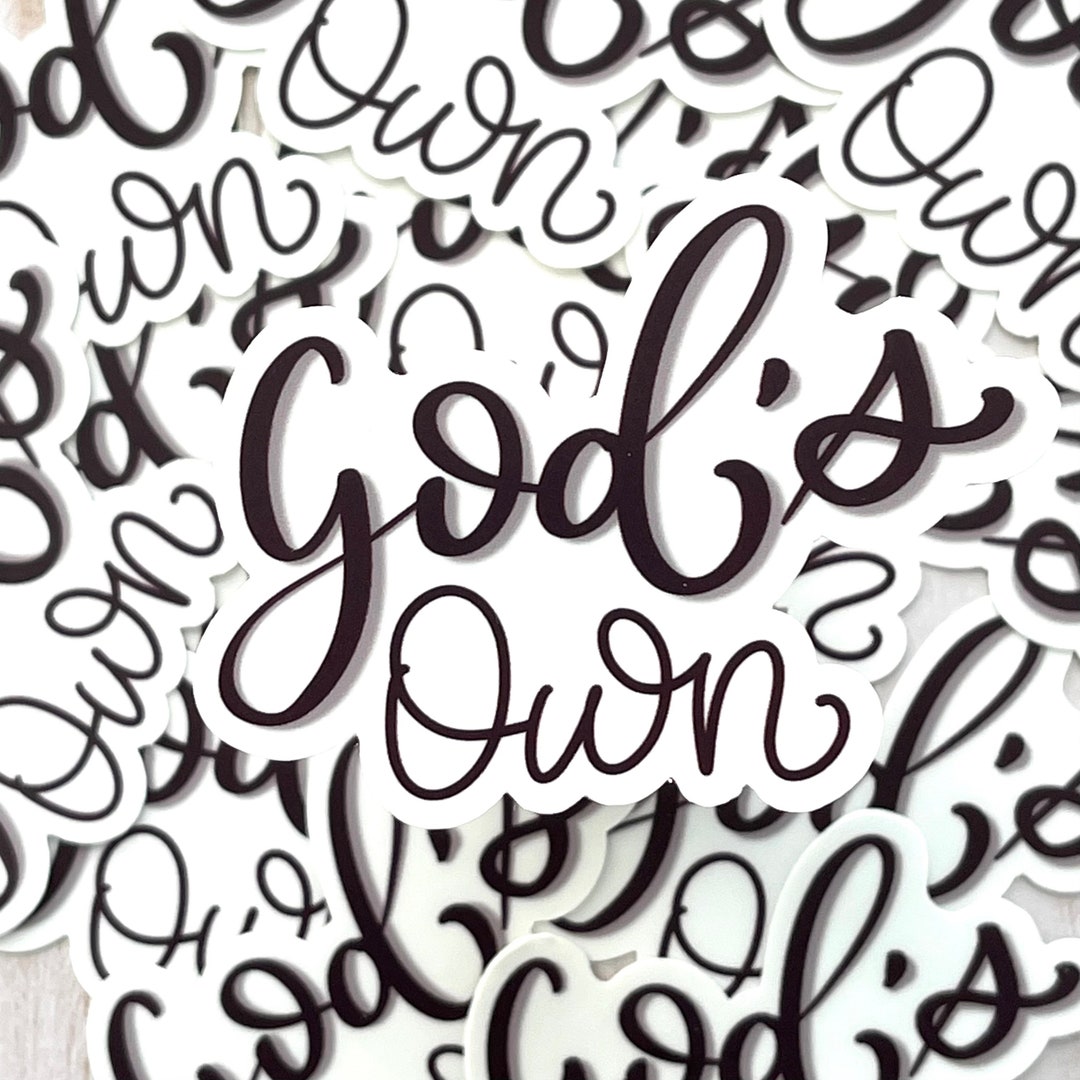 God's
Own